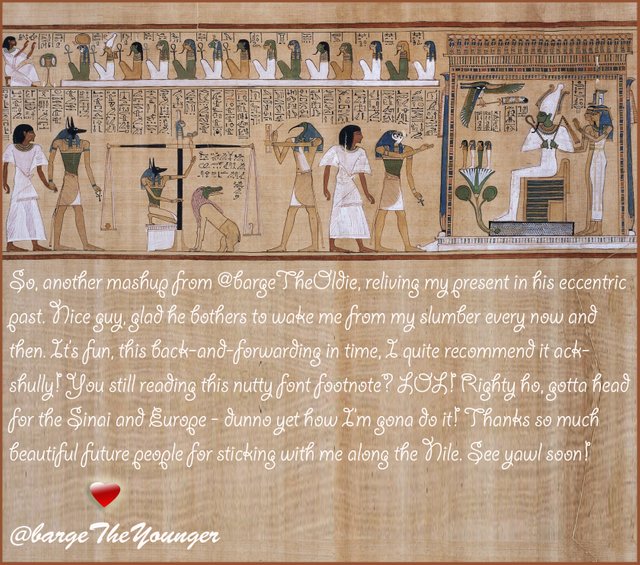 So, another mashup from @bargeTheOldie, reliving my present in his eccentric
past. Nice guy, glad he bothers to wake me from my slumber every now and
then. It's fun, this back-and-forwarding in time, I quite recommend it ack-
shully! You still reading this nutty font footnote? LOL! Righty ho, gotta head
for the Sinai and Europe - dunno yet how I'm gona do it! Thanks so much
beautiful future people for sticking with me along the Nile. See yawl soon!
@bargeTheYounger